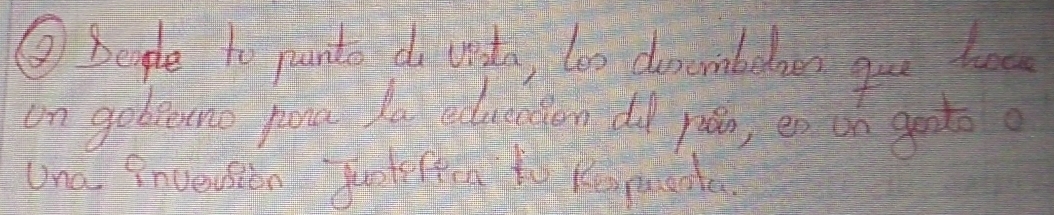 ② Desde tu punto de vista, los desembolsos que hace
un gobierno para la educación del país, es un gasto o
Una inversión Justifica tu Respuesta.